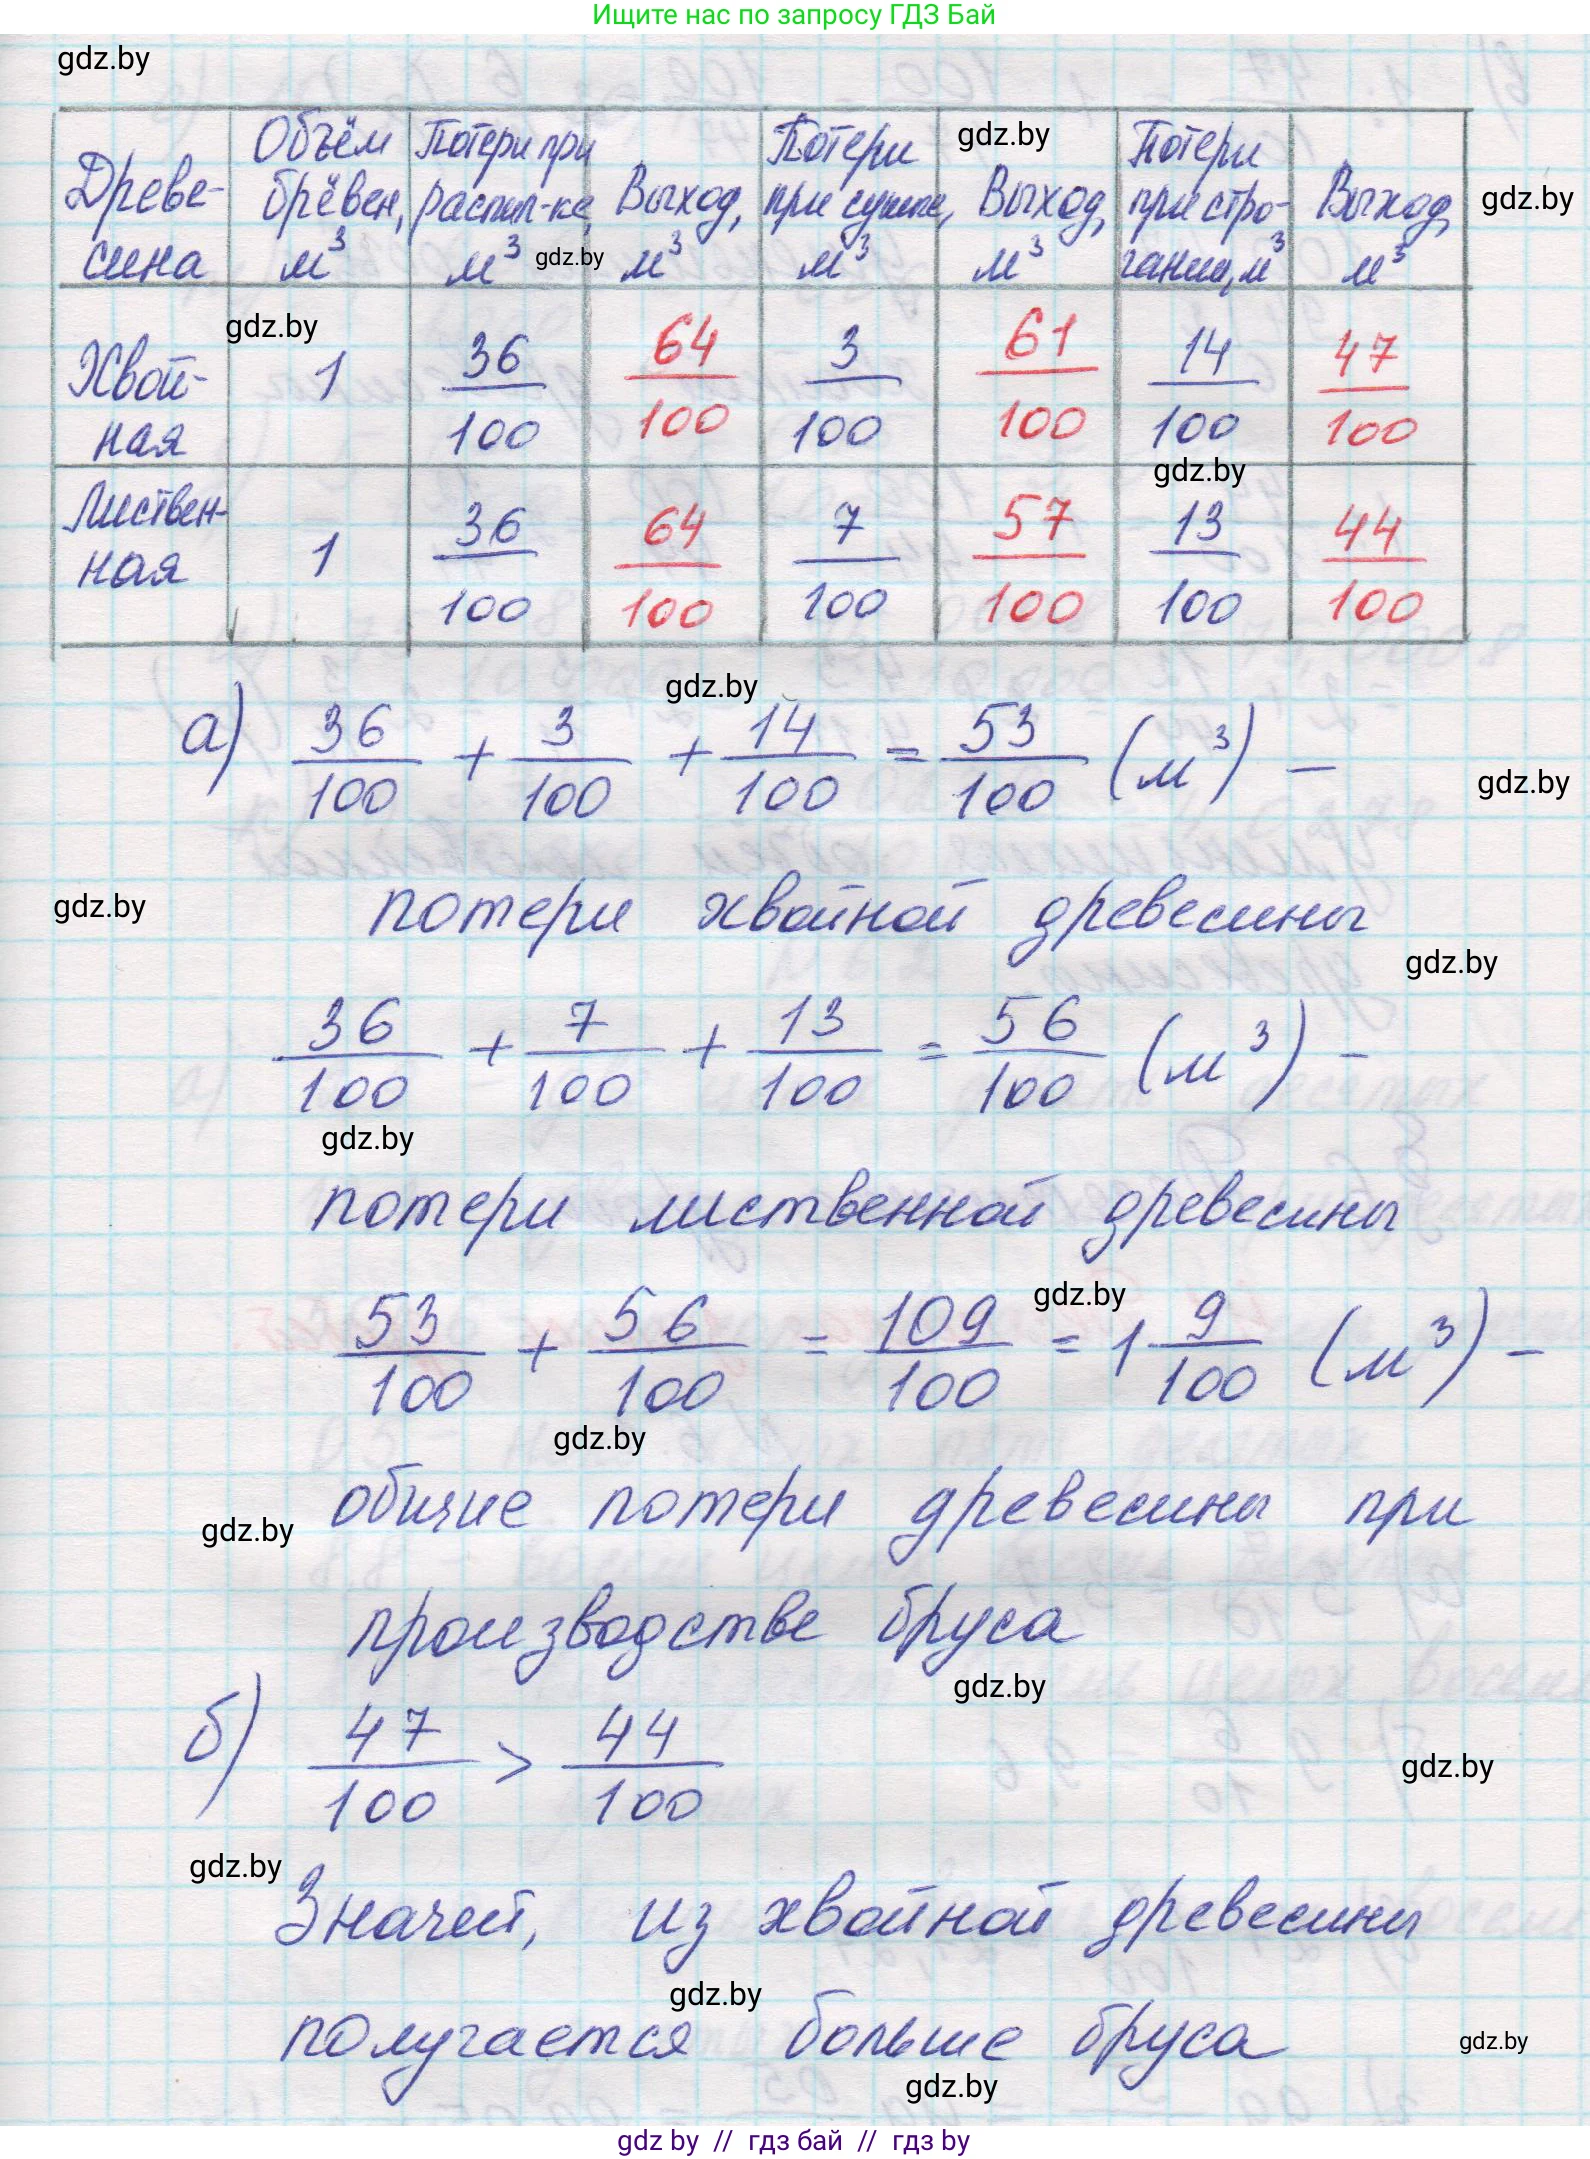 Ищите нас по запросу ГДЗ Бай
gdz.by
Древе-сина | Объём брёвен, м³ | Потери при распил-ке, м³ | Выход, м³ | Потери при сушке, м³ | Выход, м³ | Потери при стро-гании, м³ | Выход, м³
gdz.by
gdz.by
gdz.by
gdz.by
Хвой-ная | 1 | 36/100 | 64/100 | 3/100 | 61/100 | 14/100 | 47/100
gdz.by
Листвен-ная | 1 | 36/100 | 64/100 | 7/100 | 57/100 | 13/100 | 44/100
gdz.by
а) 36/100 + 3/100 + 14/100 = 53/100 (м³) –
gdz.by
gdz.by
потери хвойной древесины
gdz.by
36/100 + 7/100 + 13/100 = 56/100 (м³) –
gdz.by
потери лиственной древесины
gdz.by
53/100 + 56/100 = 109/100 = 1 9/100 (м³) –
gdz.by
общие потери древесины при
gdz.by
производстве бруса
gdz.by
б) 47/100 > 44/100
gdz.by
gdz.by
Значит, из хвойной древесины
gdz.by
получается больше бруса
gdz.by
gdz.by
gdz by // гдз бай // гдз by